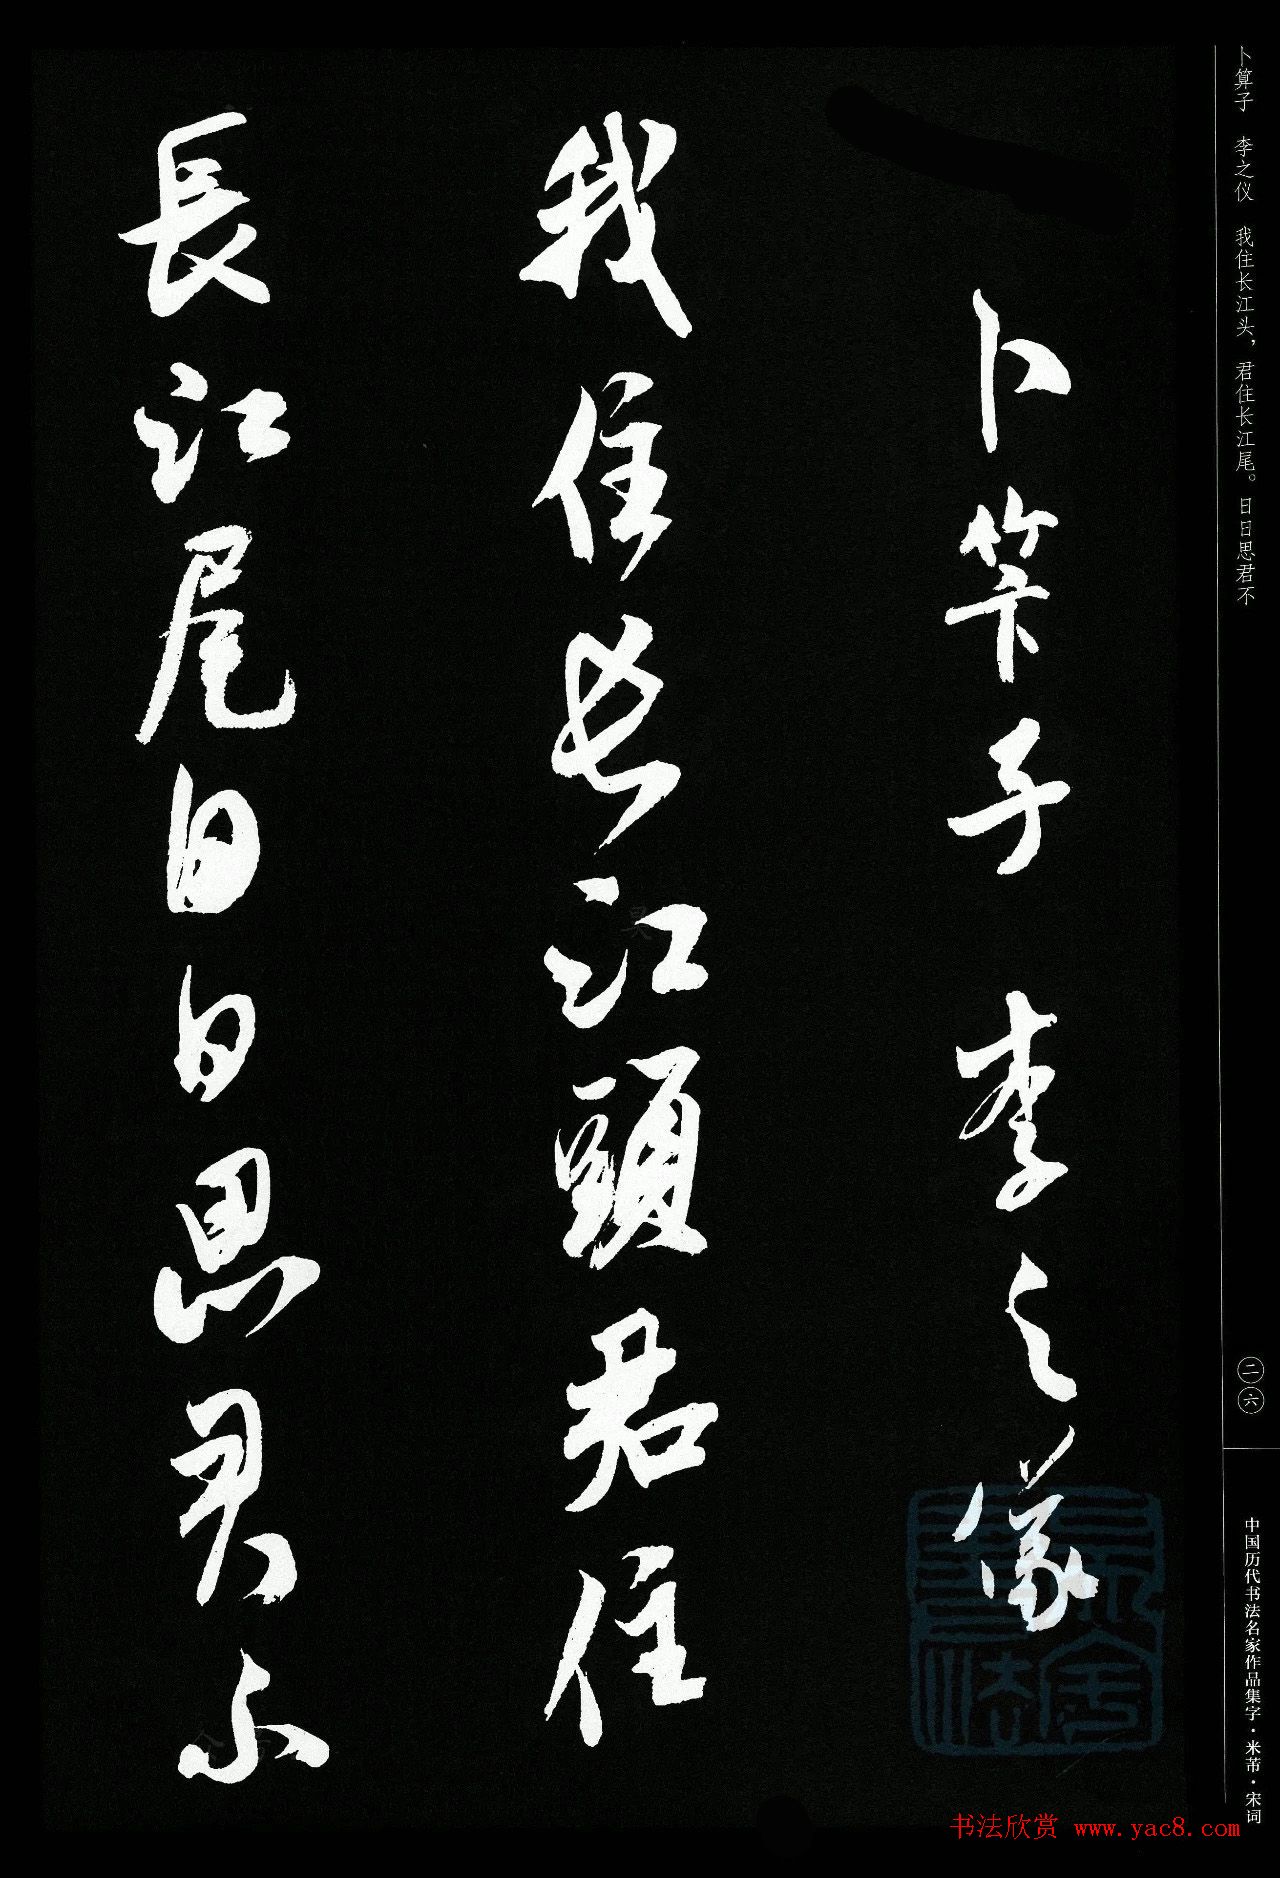 卜算子 李之仪 我住长江头，君住长江尾。日日思君不
二六
中国历代书法名家作品集字·米芾·宋词
卜筭子 李之儀
我住長江頭君住
長江尾日日思君不
书法欣赏 www.yac8.com